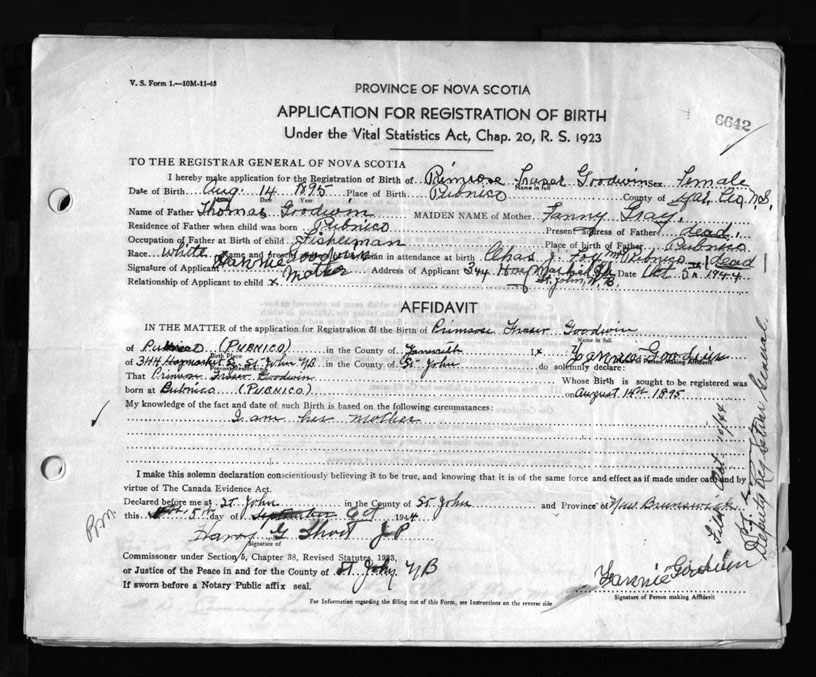 V. S. Form 1.—10M-11-43
PROVINCE OF NOVA SCOTIA
APPLICATION FOR REGISTRATION OF BIRTH
6642
Under the Vital Statistics Act, Chap. 20, R. S. 1923
TO THE REGISTRAR GENERAL OF NOVA SCOTIA
I hereby make application for the Registration of Birth of Primrose Fraser Goodwin Sex Female
Name in full
Date of Birth Aug. 14 1895 Place of Birth Pubnico County of Yar. Co. N.S.
Month Date Year
Name of Father Thomas Goodwin MAIDEN NAME of Mother Fanny Gray
Residence of Father when child was born Pubnico Present Address of Father dead.
Occupation of Father at Birth of child Fisherman Place of birth of Father Pubnico
Race White Name and in attendance at birth Chas. J. Fox Pubnico dead
Signature of Applicant Fannie Goodwin Address of Applicant 344 Haymarket Sq. Date Oct 5th 1944
Relationship of Applicant to child x Mother St. John, N.B.
AFFIDAVIT
IN THE MATTER of the application for Registration of the Birth of Primrose Fraser Goodwin
Name in full
of Pubnico (PUBNICO) in the County of Yarmouth I, x Fannie Goodwin
Birth Place Person making Affidavit
of 344 Haymarket Sq. St. John NB in the County of St. John do solemnly declare:
That Primrose Fraser Goodwin Whose Birth is sought to be registered was
born at Pubnico (PUBNICO) on August 14th 1895
My knowledge of the fact and date of such Birth is based on the following circumstances:
I am her mother
I make this solemn declaration conscientiously believing it to be true, and knowing that it is of the same force and effect as if made under oath and by
virtue of The Canada Evidence Act.
Declared before me at St. John in the County of St John and Province of New Brunswick
this 5th day of September Oct 1944
G. Short J P
Signature of
Commissioner under Section 5, Chapter 38, Revised Statutes, 1923,
or Justice of the Peace in and for the County of St John NB
If sworn before a Notary Public affix seal.
Fannie Goodwin
Signature of Person making Affidavit
For Information regarding the filling out of this Form, see Instructions on the reverse side
R.M.
Filed Oct 1944
Deputy Registrar General.